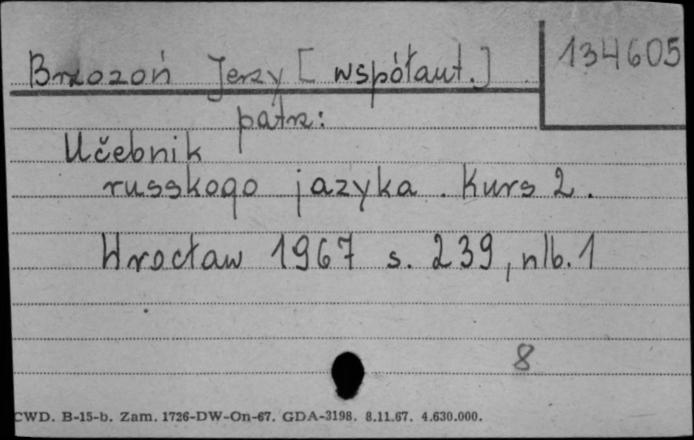 134605
Brzozoń Jerzy [współaut.]
patrz:
Učebnik
russkogo jazyka. Kurs 2.
Wrocław 1967 s. 239, nlb. 1
8
CWD. B-15-b. Zam. 1726-DW-On-67. GDA-3198. 8.11.67. 4.630.000.